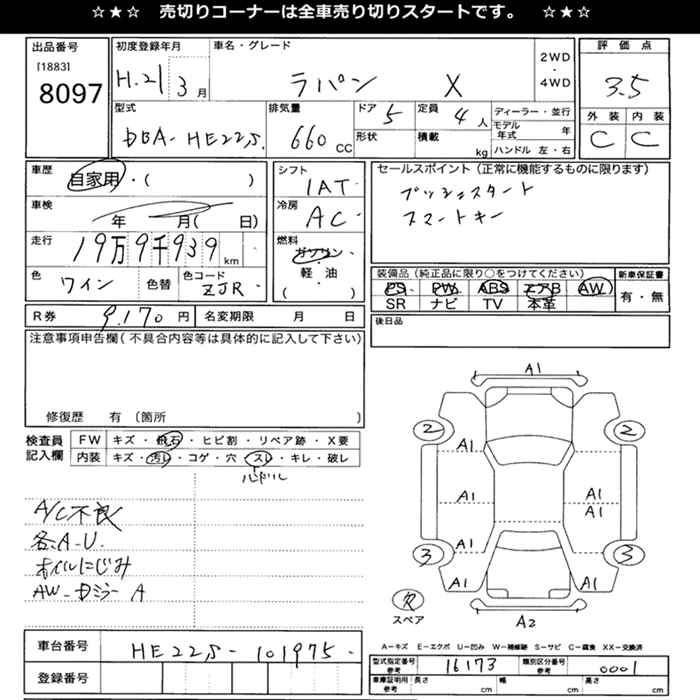 ☆★☆ 売切りコーナーは全車売り切りスタートです。 ☆★☆
出品番号 [1883] 8097
初度登録年月 H.21 3月
車名・グレード ラパン X
2WD・4WD
評価点 3.5
型式 DBA-HE22S.
排気量 660 CC
ドア 5 形状
定員 4人 積載 kg
ディーラー・並行
モデル年式 年
ハンドル 左・右
外装 C 内装 C
車歴 自家用・( )
シフト IAT
セールスポイント(正常に機能するものに限ります)
プッシュスタート
スマートキー
車検 年 月( 日)
冷房 AC
走行 19万9千939 km
燃料 ガソリン・軽油 ( )
色 ワイン 色替 色コード ZJR
装備品(純正品に限り○をつけてください) 新車保証書
PS PW ABS エアB AW 有・無
SR ナビ TV 本革
R券 9.170 円 名変期限 月 日
後日品
注意事項申告欄(不具合内容等は具体的に記入して下さい)
修復歴 有 〔箇所 〕
検査員記入欄 FW キズ・飛石・ヒビ割・リペア跡・X要
内装 キズ・汚れ・コゲ・穴・スレ・キレ・破レ
ハンドル
A/C不良
各A-U.
オイルにじみ
AW-ドミラー A
A1
2 2
A1
A1 A1
A1
3 3
A1
A1 A1
欠
スペア
A2
A-キズ E-エクボ U-凹み W-補修跡 S-サビ C-腐食 XX-交換済
車台番号 HE22S-101975.
登録番号
型式指定番号 参考 16173 類別区分番号 参考 0001
車庫証明用 参考 長さ cm 幅 cm 高さ cm